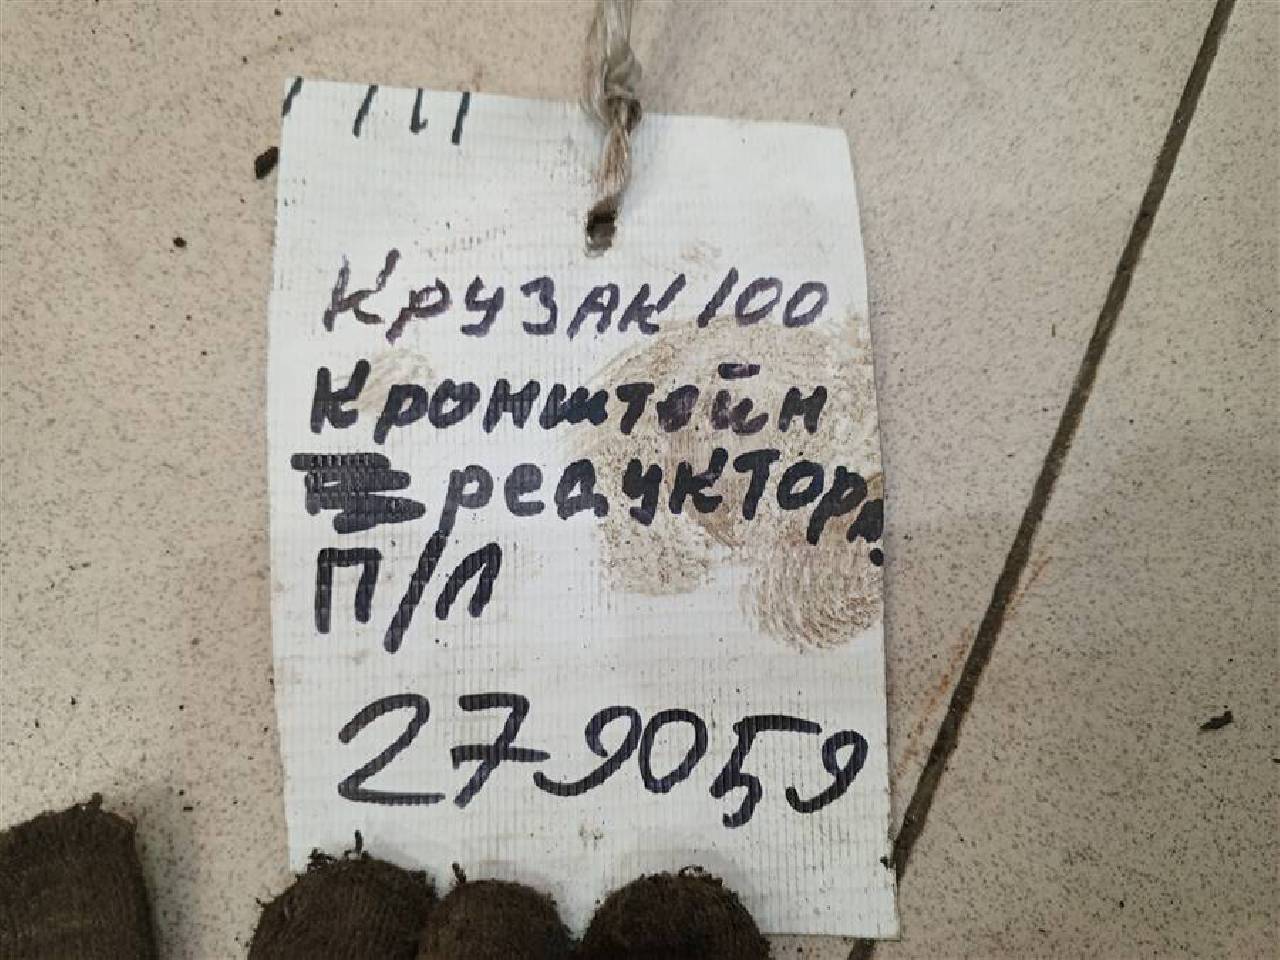 Крузак 100
Кронштейн
редуктора
П/Л
279059